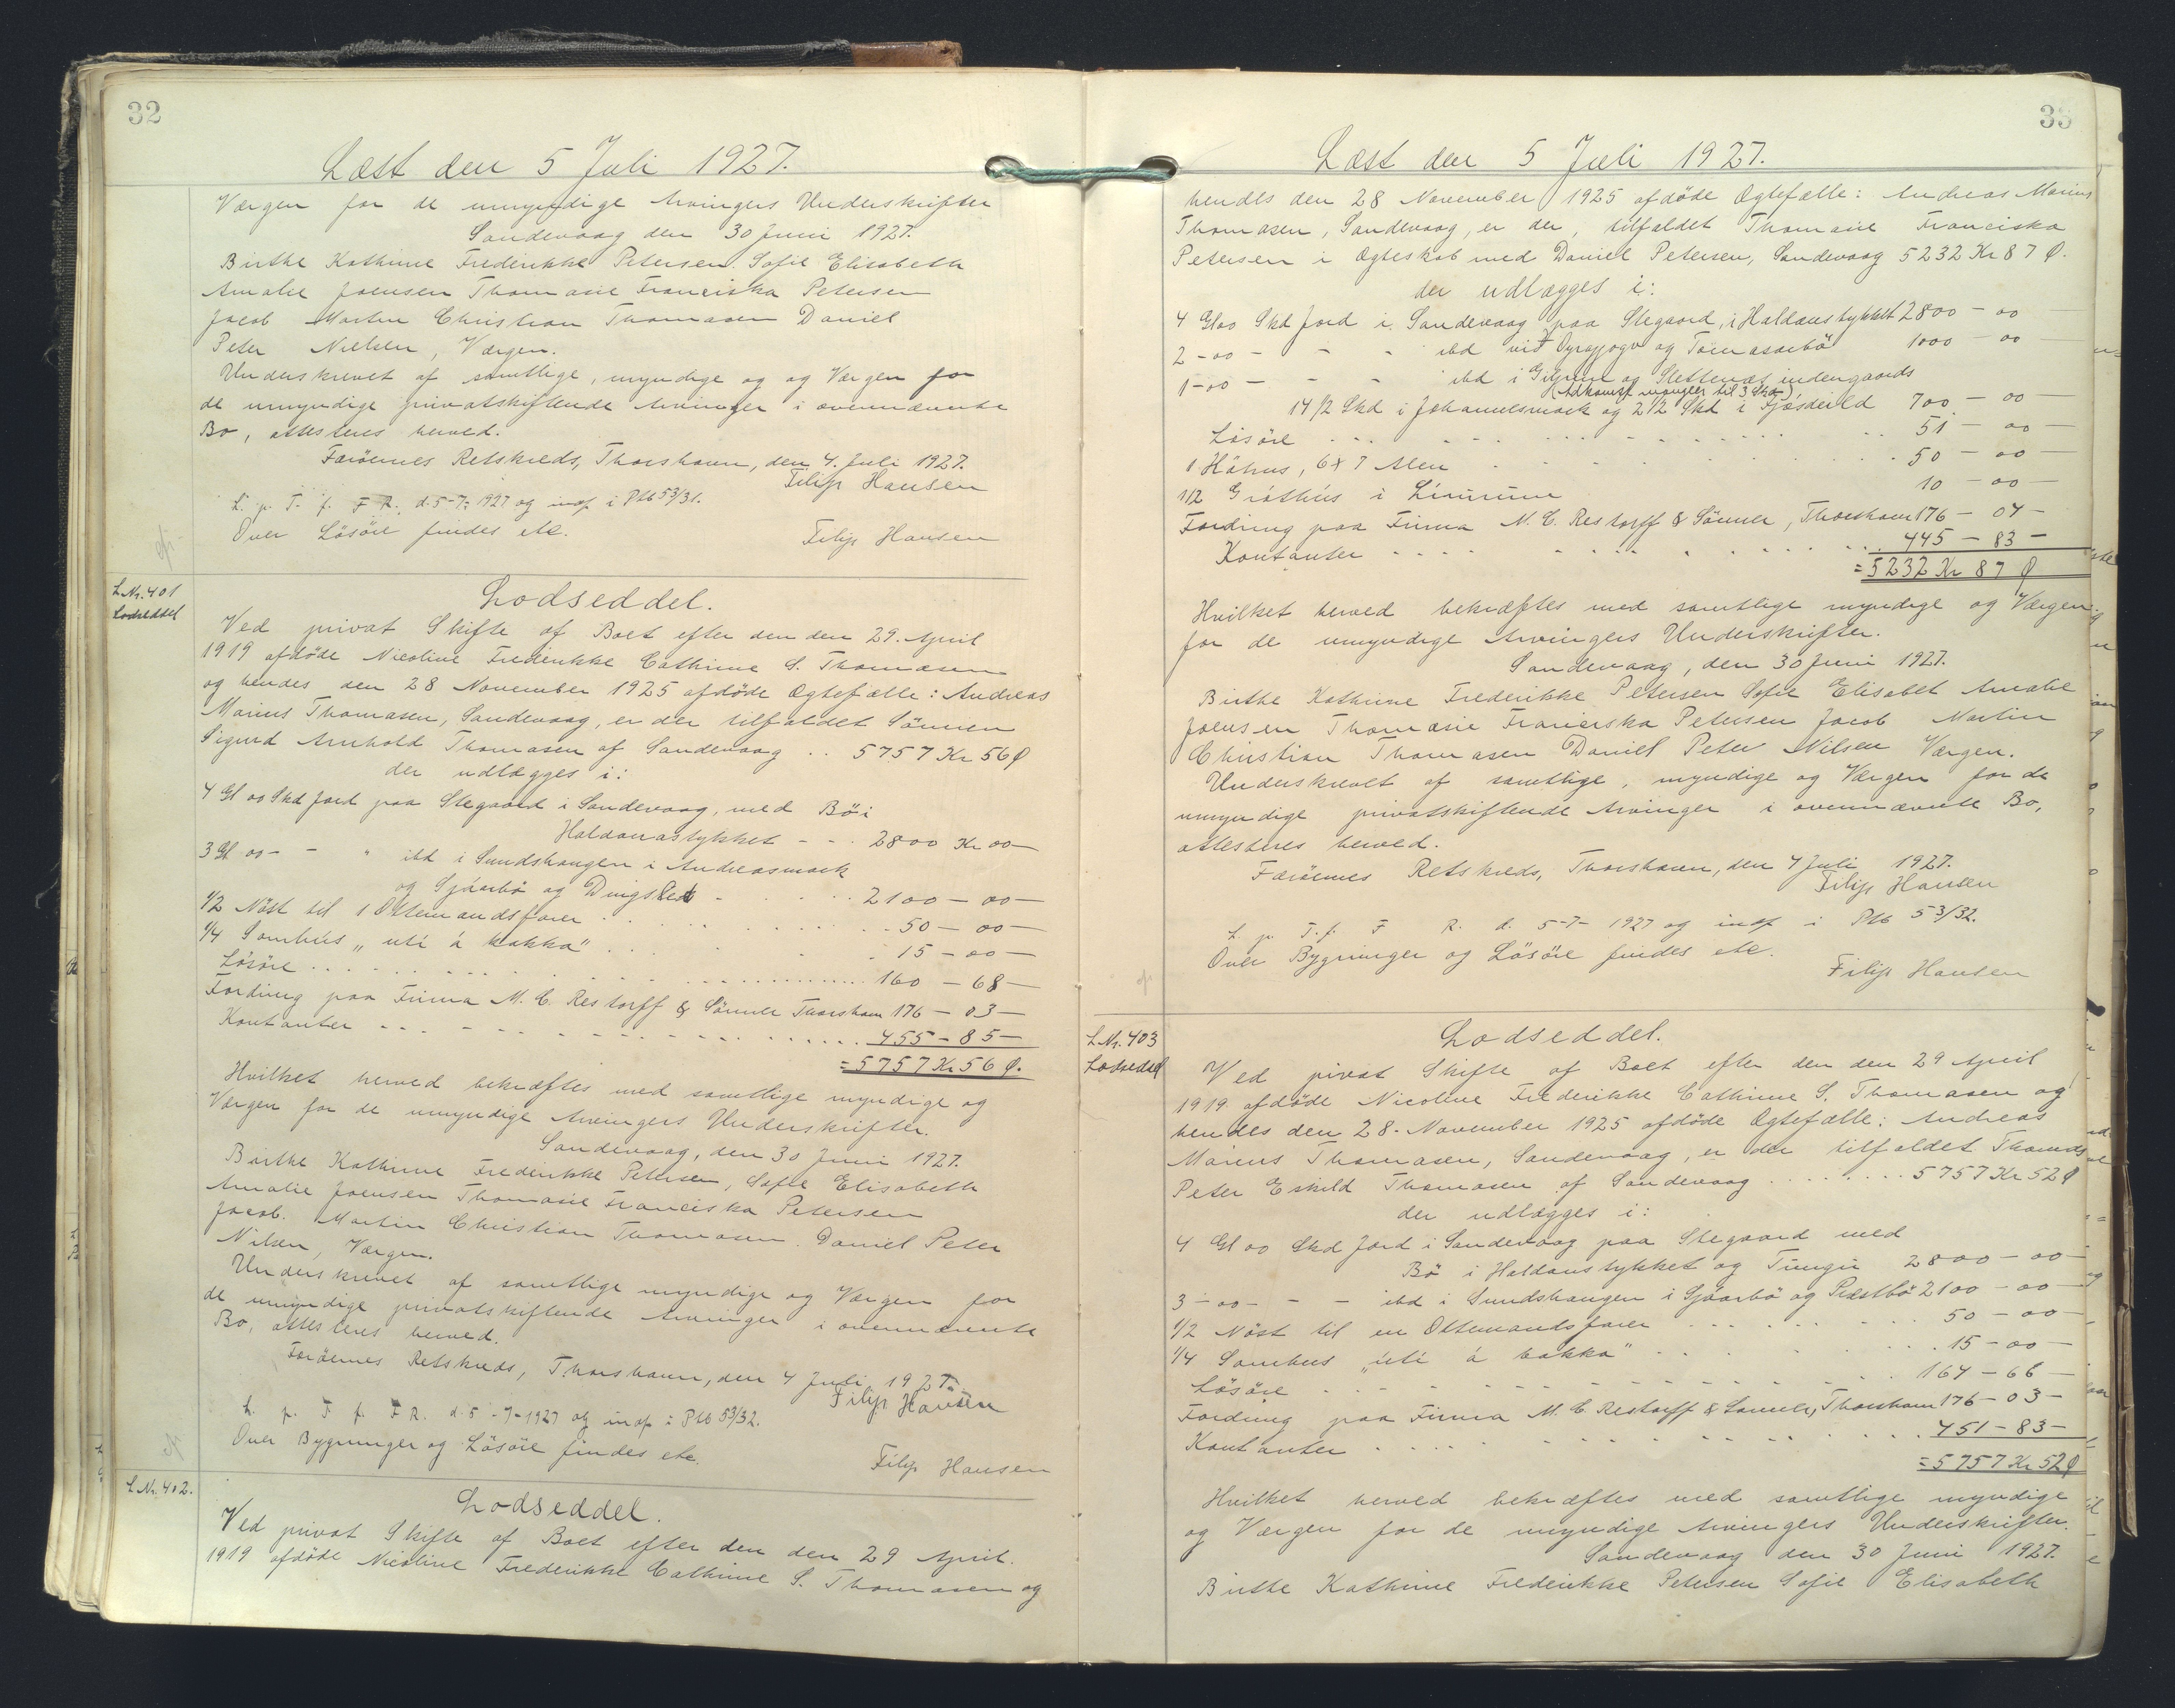 32
Læst den 5 Juli 1927.
Værgen for de umyndige Arvingers Underskrifter
Sandevaag den 30 Juni 1927.
Birthe Kathrine Frederikke Petersen. Sofie Elisabeth
Amalie Joensen Thomasie Franciska Petersen
Jacob Martin Christian Thomasen Daniel
Peter Nielsen, Værgen.
Underskrevet af samtlige, myndige og og Værgen for
de umyndige privatskiftende Arvinger i ovennævnte
Bo, attesteres herved.
Færöernes Retskreds, Thorshavn, den 4. Juli 1927.
Filip Hansen
L. p. T. f. F R. d. 5-7- 1927 og indf i Ptb 53/31.
Over Lösöre findes etc.
Filip Hansen
L Nr. 401
Lodseddel
Lodseddel.
Ved privat Skifte af Boet efter den den 29. April
1919 afdöde Nicoline Frederikke Cathrine S. Thomasen
og hendes den 28 November 1925 afdöde Ægtefælle: Andreas
Marius Thomasen, Sandevaag, er der tilfaldet Sönnen
Sigurd Arnhold Thomasen af Sandevaag .. 5757 Kr 56 Ø
der udlægges i:
4 Gl 00 Skd Jord paa Stegaard i Sandevaag, med Bö i
Haldanastykket - - . 2800 Kr 00 -
3 Gl 00 - - " ibd i Sundshaugen i Andreasmark
og Sjöarbö og - . . . . 2100 - 00 -
1/2 Nöst til 1 Ottemandsfarer . . . . . 50 - 00 -
1/4 Sornhús „uti á bakka" . . . 15 - 00 -
Lösöre . . . . . . . 160 - 68 -
Fordring paa Firma M. C. Restorff & Sönner Thorshavn 176 - 03 -
Kontanter - - - . . . . . . 455 - 85 -
= 5757 Kr 56 Ø.
Hvilket herved bekræftes med samtlige myndige og
Værgen for de umyndige Arvingers Underskrifter.
Sandevaag, den 30 Juni 1927.
Birthe Kathrine Frederikke Petersen, Sofie Elisabeth
Amalie Joensen Thomasie Franciska Petersen
Jacob. Martin Christian Thomasen. Daniel Peter
Nilsen, Værgen.
Underskrevet af samtlige myndige og Værgen for
de umyndige privatskiftende Arvinger i ovennævnte
Bo, attesteres herved.
Færöernes Retskreds, Thorshavn, den 4 Juli 1927.
Filip Hansen
L. p. T f. F R. d. 5 - 7 - 1927 og indf i Ptb 53/32.
Over Bygninger og Lösöre findes etc.
Filip Hansen
L Nr. 402.
Lodseddel.
Ved privat Skifte af Boet efter den den 29 April.
1919 afdöde Nicoline Frederikke Cathrine S. Thomasen og
33
Læst den 5 Juli 1927.
hendes den 28 November 1925 afdöde Ægtefælle: Andreas Marius
Thomasen, Sandevaag, er der, tilfaldet Thomasie Franciska
Petersen i Ægteskab med Daniel Petersen, Sandevaag 5232 Kr 87 Ø.
der udlægges i:
4 Gl 00 Skd Jord i Sandevaag paa Stegaard, i Haldanstykket 2800 - 00
2 - 00 - - - ibd við og Tómasarbö 1000 - 00
1 - 00 - - - ibd i og Slettenæs indengaards
(Adkomst mangler til 3 Skd)
14 1/2 Skd i Johannesmark og 2 1/2 Skd i Fjósdeild 700 - 00
Lösöre . . . . . . . 51 - 00 -
1 Höhus, 6 x 7 Alen . . . . . 50 - 00 -
1/2 Gróthús i 10 - 00 -
Fordring paa Firma M. C. Restorff & Sönner, Thorshavn 176 - 04 -
Kontanter - - - . . . . . 445 - 83 -
= 5232 Kr 87 Ø
Hvilket herved bekræftes med samtlige myndige og Værgen
for de umyndige Arvingers Underskrifter.
Sandevaag, den 30 Juni 1927.
Birthe Kathrine Frederikke Petersen Sofie Elisabet Amalie
Joensen Thomasie Franciska Petersen Jacob Martin
Christian Thomasen Daniel Peter Nilsen Værgen.
Underskrevet af samtlige, myndige og Værgen for de
umyndige privatskiftende Arvinger i ovennævnte Bo,
attesteres herved.
Færöernes Retskreds, Thorshavn, den 4 Juli 1927.
Filip Hansen
L. p. T. f. F R. d. 5-7- 1927 og indf i Ptb 53/32.
Over Bygninger og Lösöre findes etc.
Filip Hansen
L Nr. 403
Lodseddel
Lodseddel.
Ved privat Skifte af Boet efter den den 29 April
1919 afdöde Nicoline Frederikke Cathrine S. Thomasen og
hendes den 28. November 1925 afdöde Ægtefælle: Andreas
Marius Thomasen, Sandevaag, er der tilfaldet Thomas
Peter Eskild Thomasen af Sandevaag . . . . 5757 Kr 52 Ø
der udlægges i:
4 Gl 00 Skd Jord i Sandevaag paa Stegaard med
Bö i Haldanstykket og Tungu 2800 - 00 -
3 - 00 - - - ibd i Sundshaugen i Sjöarbö og Præstbö 2100 - 00 -
1/2 Nöst til en Ottemandsfarer . . . . . 50 - 00 -
1/4 Sornhus „úti á bakka" . . . . . 15 - 00 -
Lösöre . . . . . . . 164 - 66 -
Fordring paa Firma M. C. Restorff & Sönner, Thorshavn 176 - 03 -
Kontanter . . . . . . . 451 - 83 -
= 5757 Kr 52 Ø
Hvilket herved bekræftes med samtlige myndige
og Værgen for de umyndige Arvingers Underskrifter.
Sandevaag den 30 Juni 1927.
Birthe Kathrine Frederikke Petersen Sofie Elisabeth